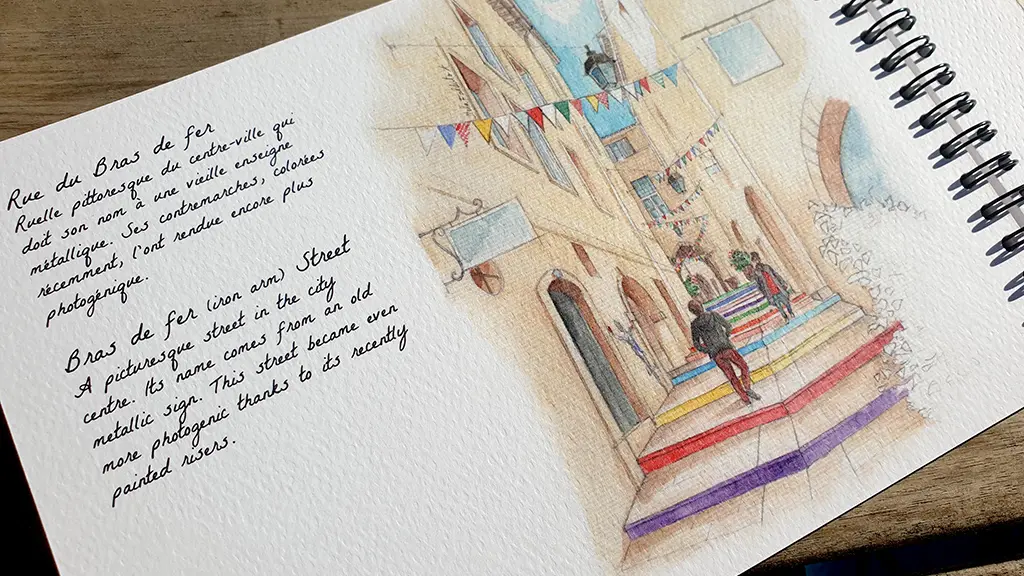 Rue du Bras de fer
Ruelle pittoresque du centre-ville qui
doit son nom à une vieille enseigne
métallique. Ses contremarches, colorées
récemment, l'ont rendue encore plus
photogénique.
Bras de fer (iron arm) Street
A picturesque street in the city
centre. Its name comes from an old
metallic sign. This street became even
more photogenic thanks to its recently
painted risers.